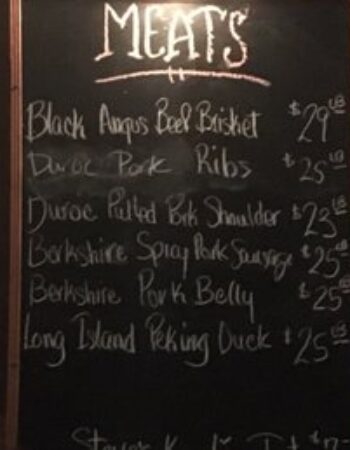 MEATS
Black Angus Beef Brisket $29 LB
Duroc Pork Ribs $25 LB
Duroc Pulled Pork Shoulder $23 LB
Berkshire Spicy Pork Sausage $25 LB
Berkshire Pork Belly $25 LB
Long Island Peking Duck $25 LB